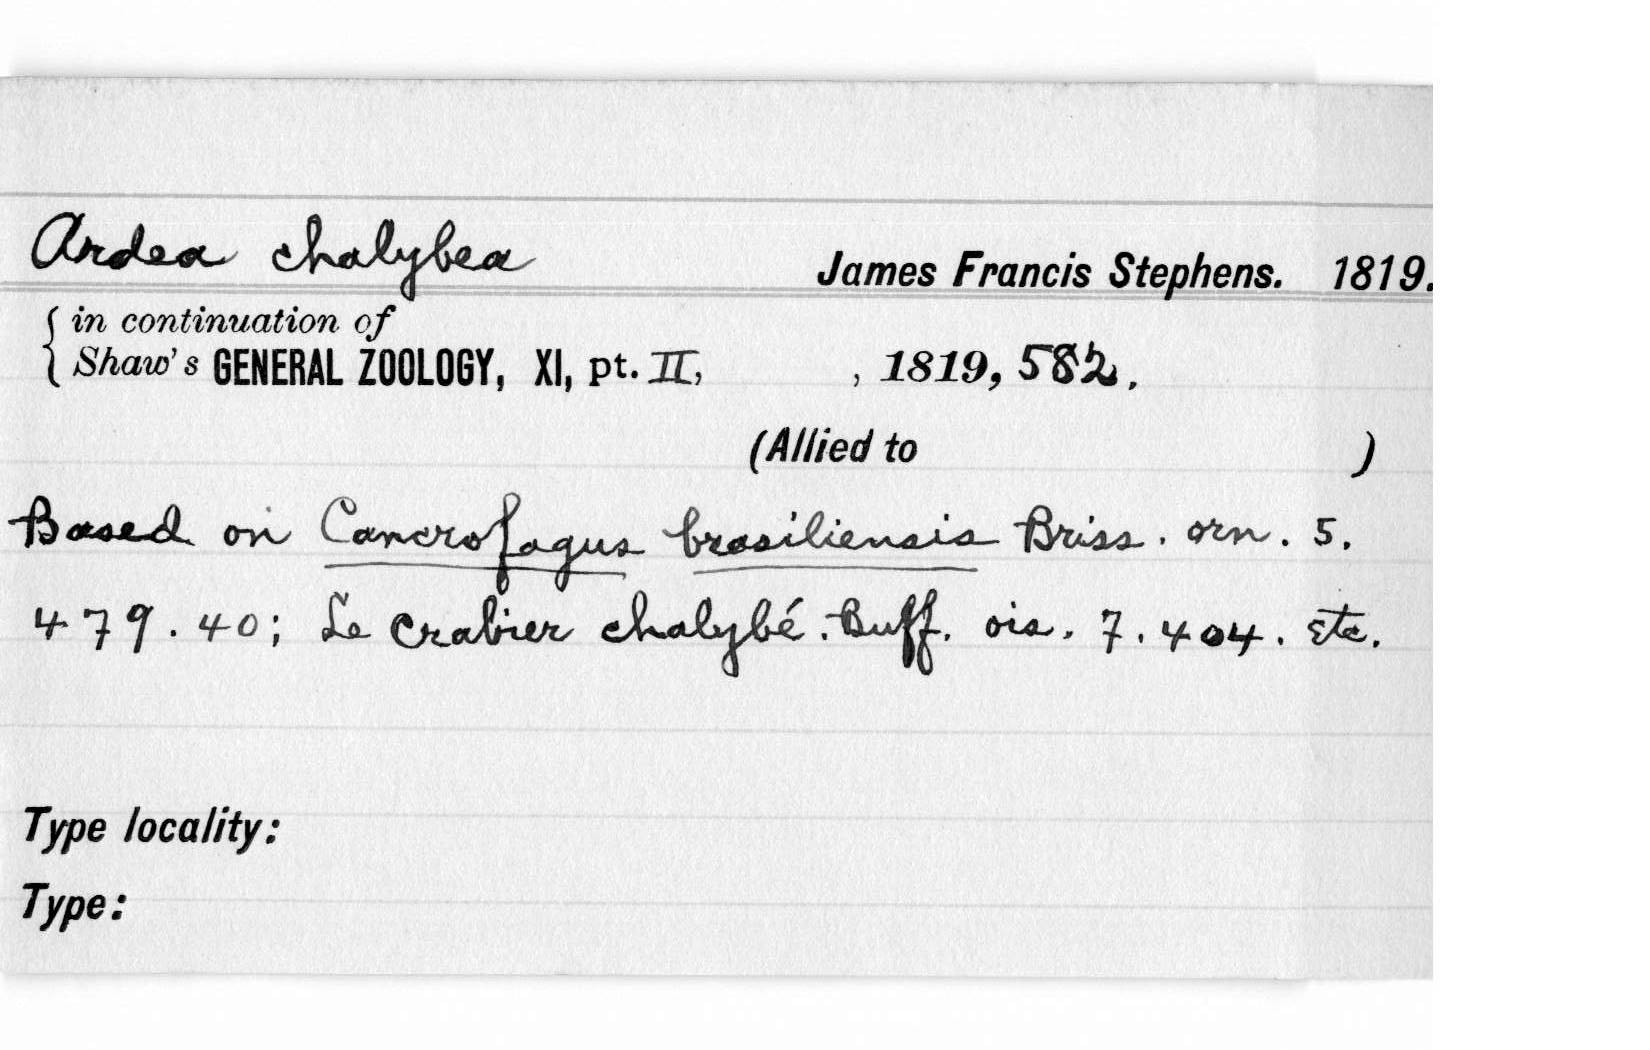 Ardea chalybea James Francis Stephens. 1819.
in continuation of
Shaw's GENERAL ZOOLOGY, XI, pt. II, , 1819, 582.
(Allied to )
Based on Cancrofagus brasiliensis Briss. orn. 5.
479. 40; Le Crabier chalybé. Buff. ois. 7. 404. Etc.
Type locality:
Type: